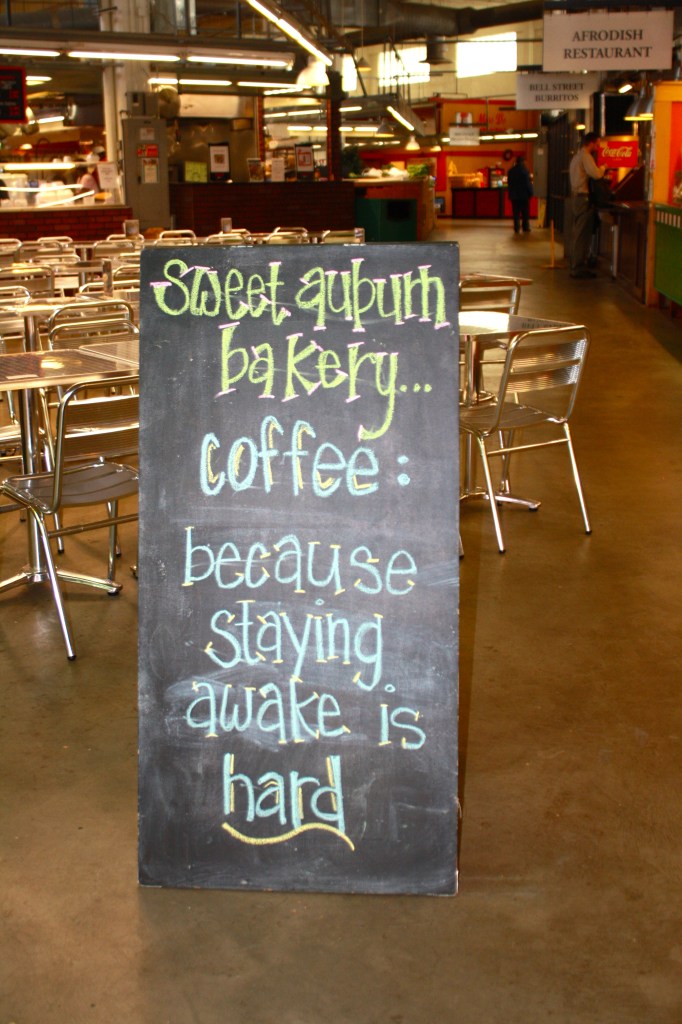 AFRODISH
RESTAURANT
BELL STREET
BURRITOS
Coca-Cola
sweet auburn
bakery...
coffee:
because
staying
awake is
hard